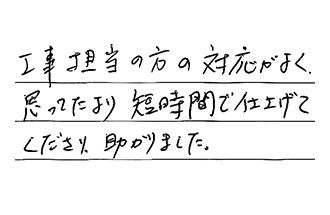 工事担当の方の対応がよく、
思ってたより短時間で仕上げて
くださり、助かりました。